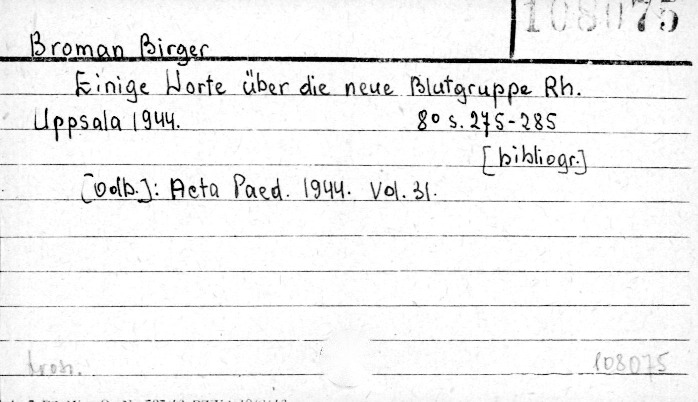 108075
Broman Birger
Einige Worte über die neue Blutgruppe Rh.
Uppsala 1944. 8° s. 275-285
[bibliogr.]
[Odb.]: Acta Paed. 1944. Vol. 31.
108075